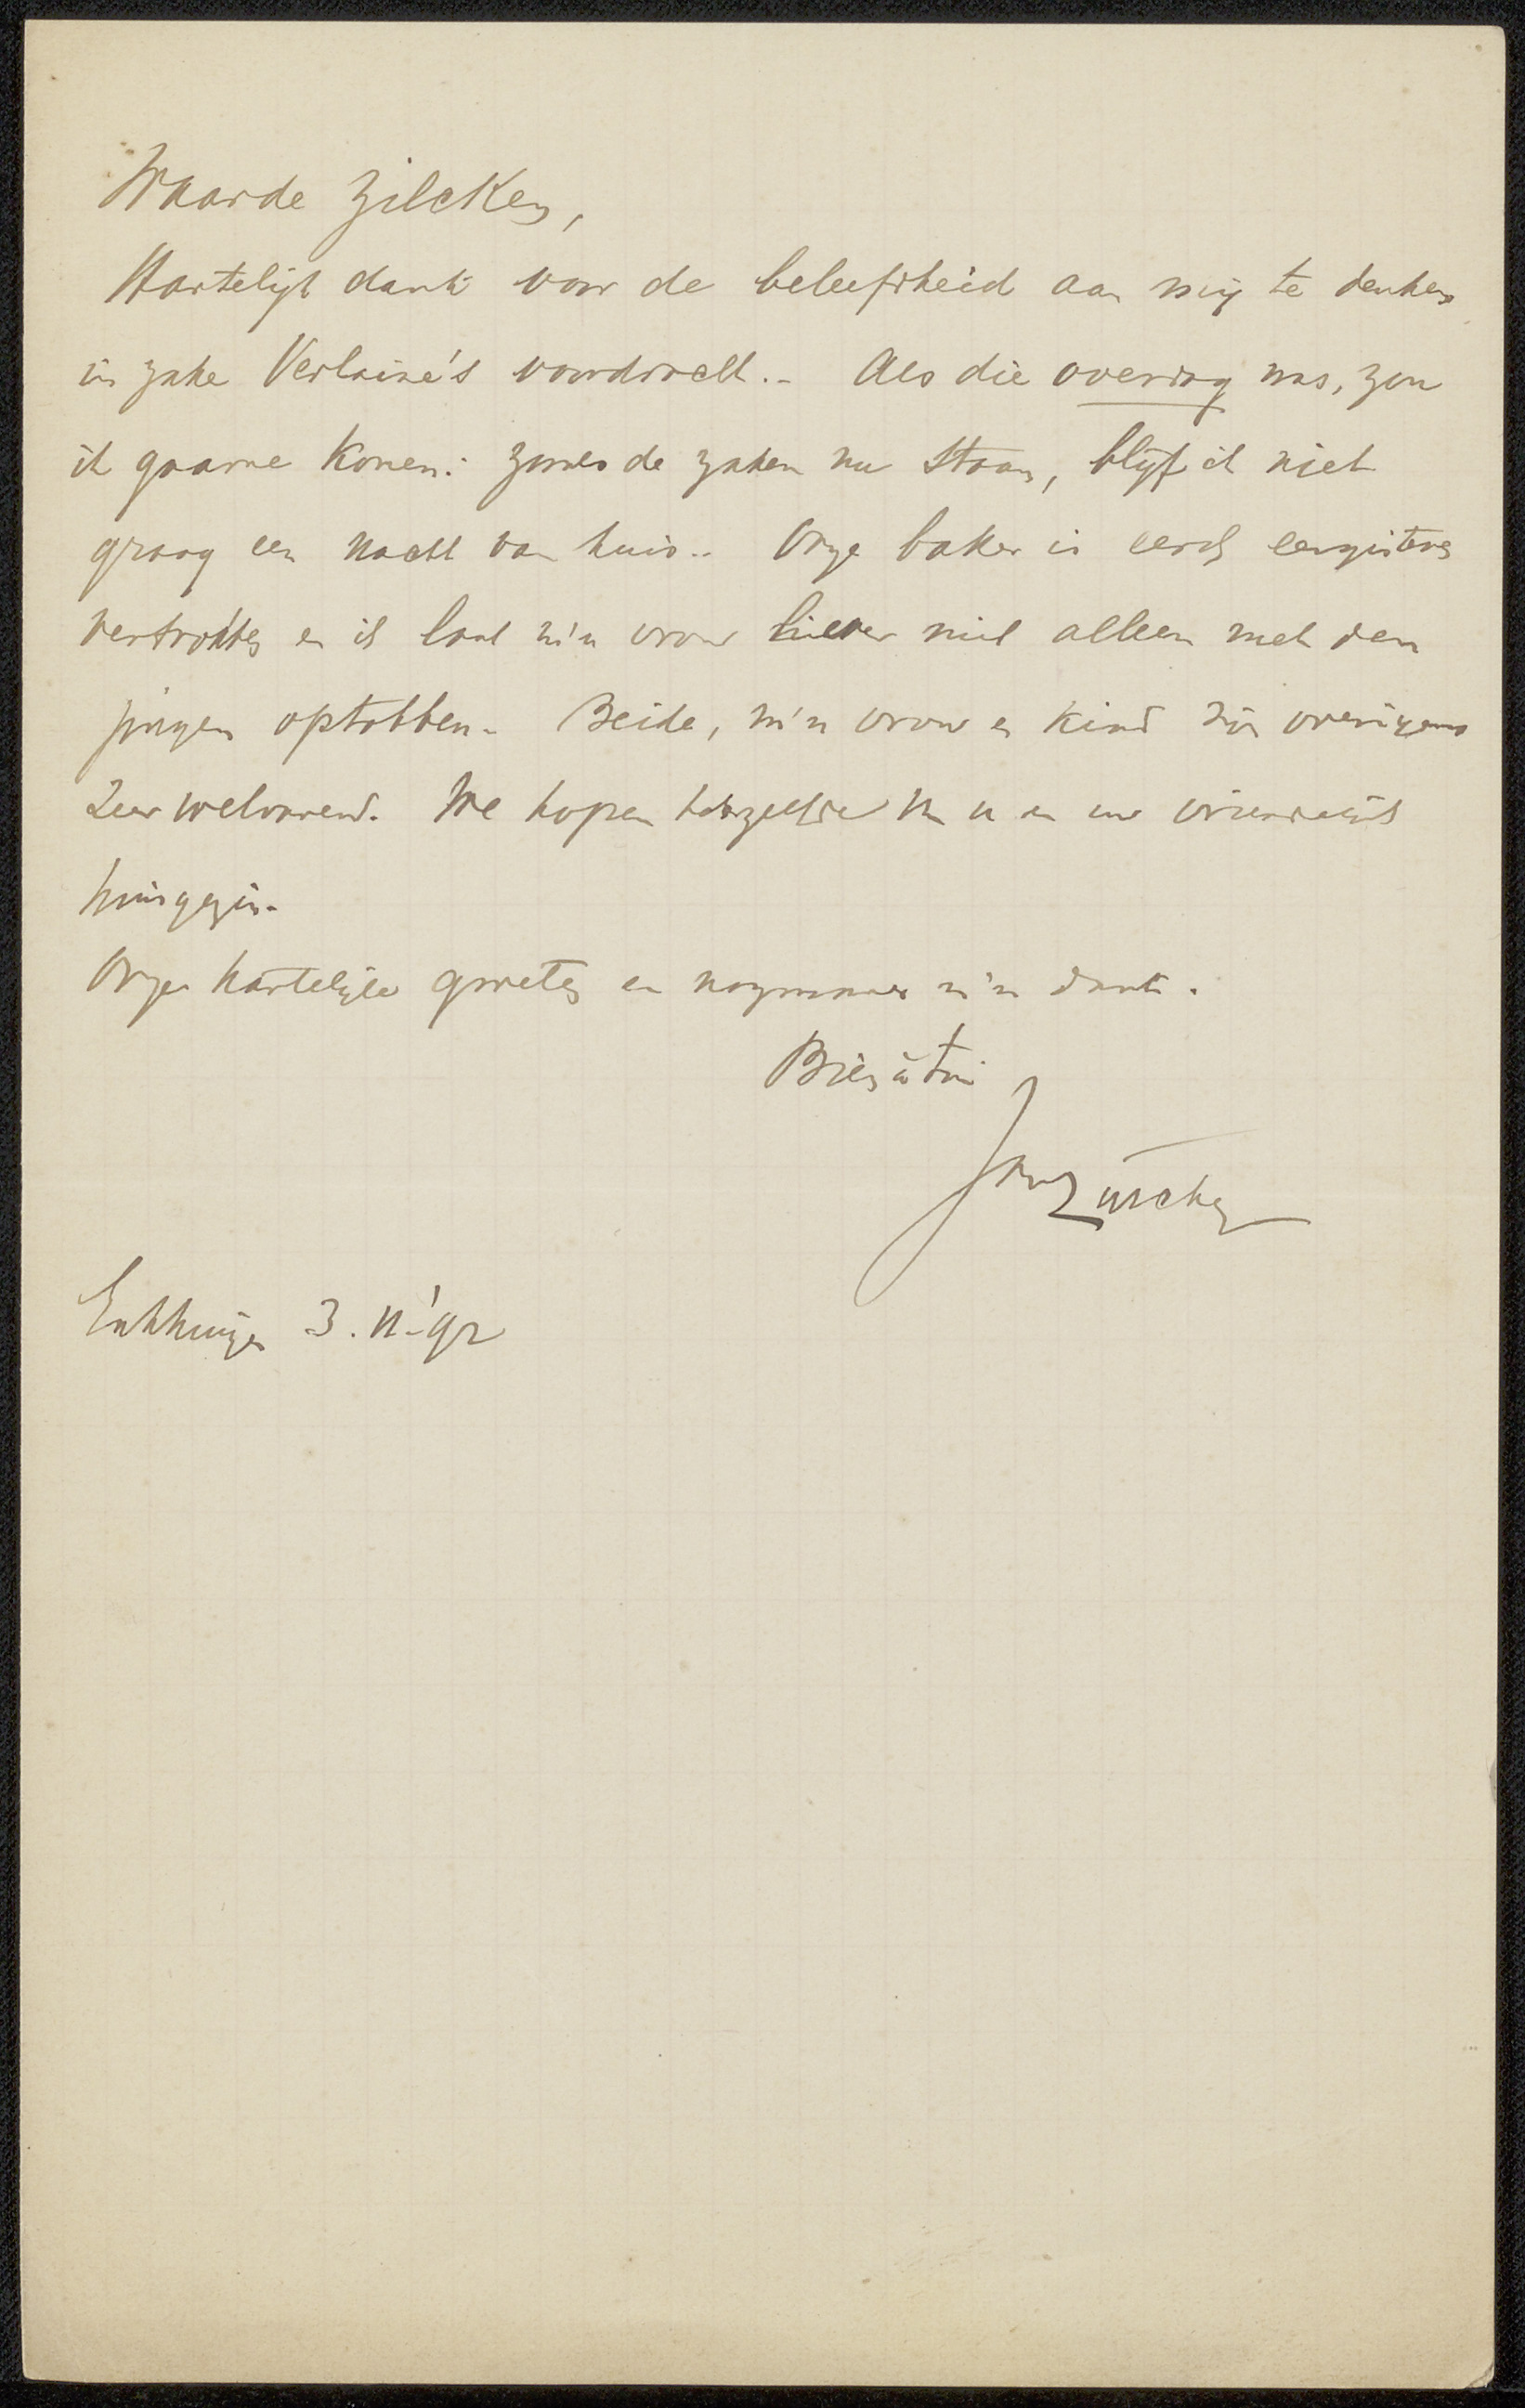 Waarde Zilcken,
Hartelijk dank voor de beleefdheid aan mij te denken
in zake Verlaine's voordracht.. Als die overdag was, zou
ik gaarne komen: zooals de zaken nu staan, blijf ik niet
graag een nacht van huis.. Onze baker is eerst eergisteren
vertrokken en ik laat m'n vrouw liever niet alleen met den
jongen optobben. Beide, m'n vrouw en kind zijn overigens
zeer welvarend. We hopen hetzelfde van u en uw vriendelijk
huisgezin.
Onze hartelijke groeten en nogmaals m'n dank.
Bien à toi
Jan Zürcher
Enkhuizen 3.11.'92